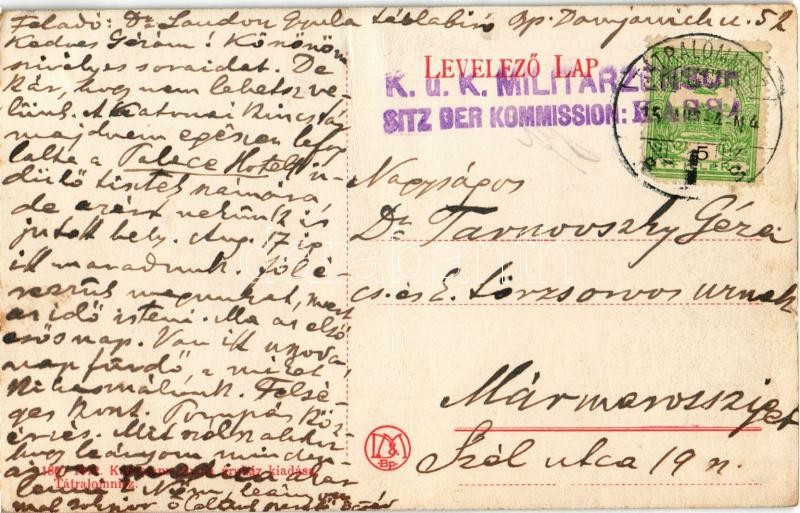 Feladó: Dr Landor Gyula táblabiró Bp. Damjanich u. 52
Kedves Gézám! Köszönöm
szivélyes soraidat. De
kár, hogy nem lehetsz ve-
lünk. A Katonai Kincstár
majdnem egészen lefog-
lalta a Palace Hotelt ü-
dülő tisztek számára
de azért nekünk is
jutott hely. Aug. 17 ig
itt maradunk. Jól é-
rezzük magunkat, mert
az idő isteni. Ma az első
esős nap. Van itt uszoda,
napfürdő, a miket
kihasználunk. Felsé-
ges kont. Pompás köz-
érzés. Mit szólsz ahhoz
hogy leányom minden
LEVELEZŐ LAP
K. u. K. MILITÄRZENSUR
SITZ DER KOMMISSION: KASSA
5
Nagyságos
Dr Tarnovszky Géza
cs. és k. törzsorvos urnak
Mármarossziget
Szél utca 19 n.
D&M
Bp.
kiadása
Tátralomnicz.
darabanth